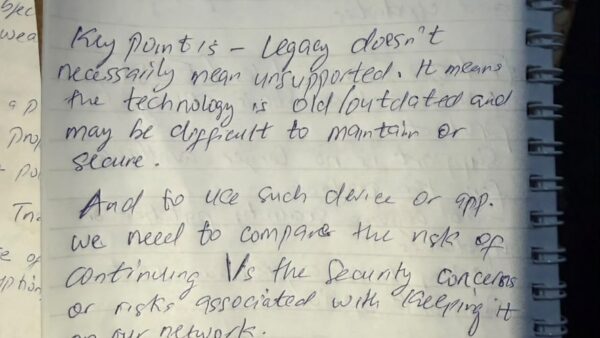 bjec
wea
Key point is – Legacy doesn't
necessarily mean unsupported. It means
the technology is old/outdated and
may be difficult to maintain or
secure.
And to use such device or app.
we need to compare the risk of
continuing Vs the security concerns
or risks associated with keeping it
on our network.